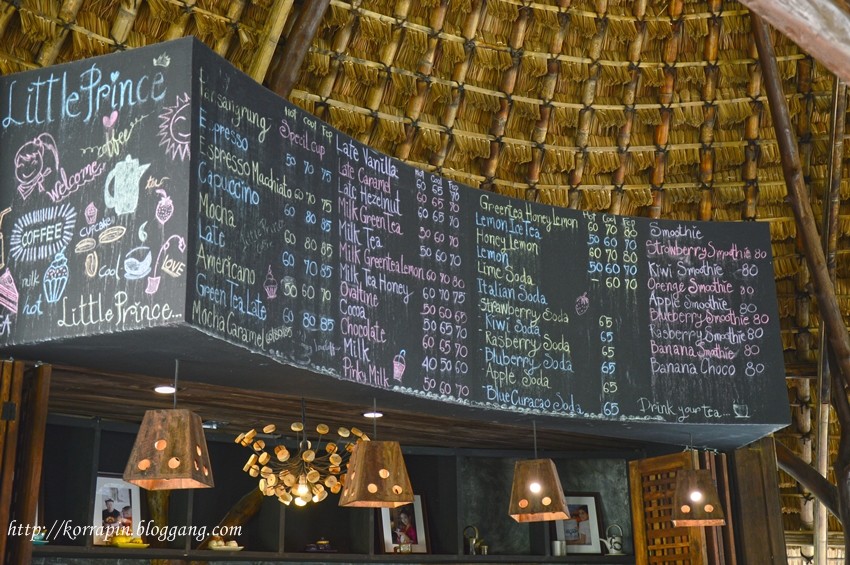 Little Prince
coffee
Welcome
tea
COFFEE
cupcake
milk
hot
Cool
LOVE
Little Prince...
Hot Cool Fep
Special cup
Espresso 50 70 75
Espresso Macchiato 60 70 80
Capuccino 70 80 85
Mocha
Late 60 80 85
Americano 60 70 85
Green Tea Late 50 60 70
Mocha Caramel 60 80 85
Late Vanilla
Late Caramel
Late Hazelnut
Milk Green Tea
Milk Tea
Milk Greentea lemon 60 70 80
Milk Tea Honey 60 70 75
Ovaltine
Cocoa
Chocolate
Milk 40 50 60
Pinky Milk 50 60 70
Hot Cool Fep
Greentea Honey Lemon 60 70 80
Lemon Ice Tea 50 60 70
Honey Lemon 60 70 80
Lemon 50 60 70
Lime Soda – 60 70
Italian Soda
Strawberry Soda 65
Kiwi Soda 65
Rasberry Soda 65
Bluberry Soda 65
Apple Soda 65
Blue Curacao Soda 65
Smoothie
Strawberry Smoothie 80
Kiwi Smoothie 80
Orenge Smoothie 80
Apple Smoothie 80
Blueberry Smoothie 80
Rasberry Smoothie 80
Banana Smoothie 80
Banana Choco 80
Drink your tea...
http://korrapin.bloggang.com